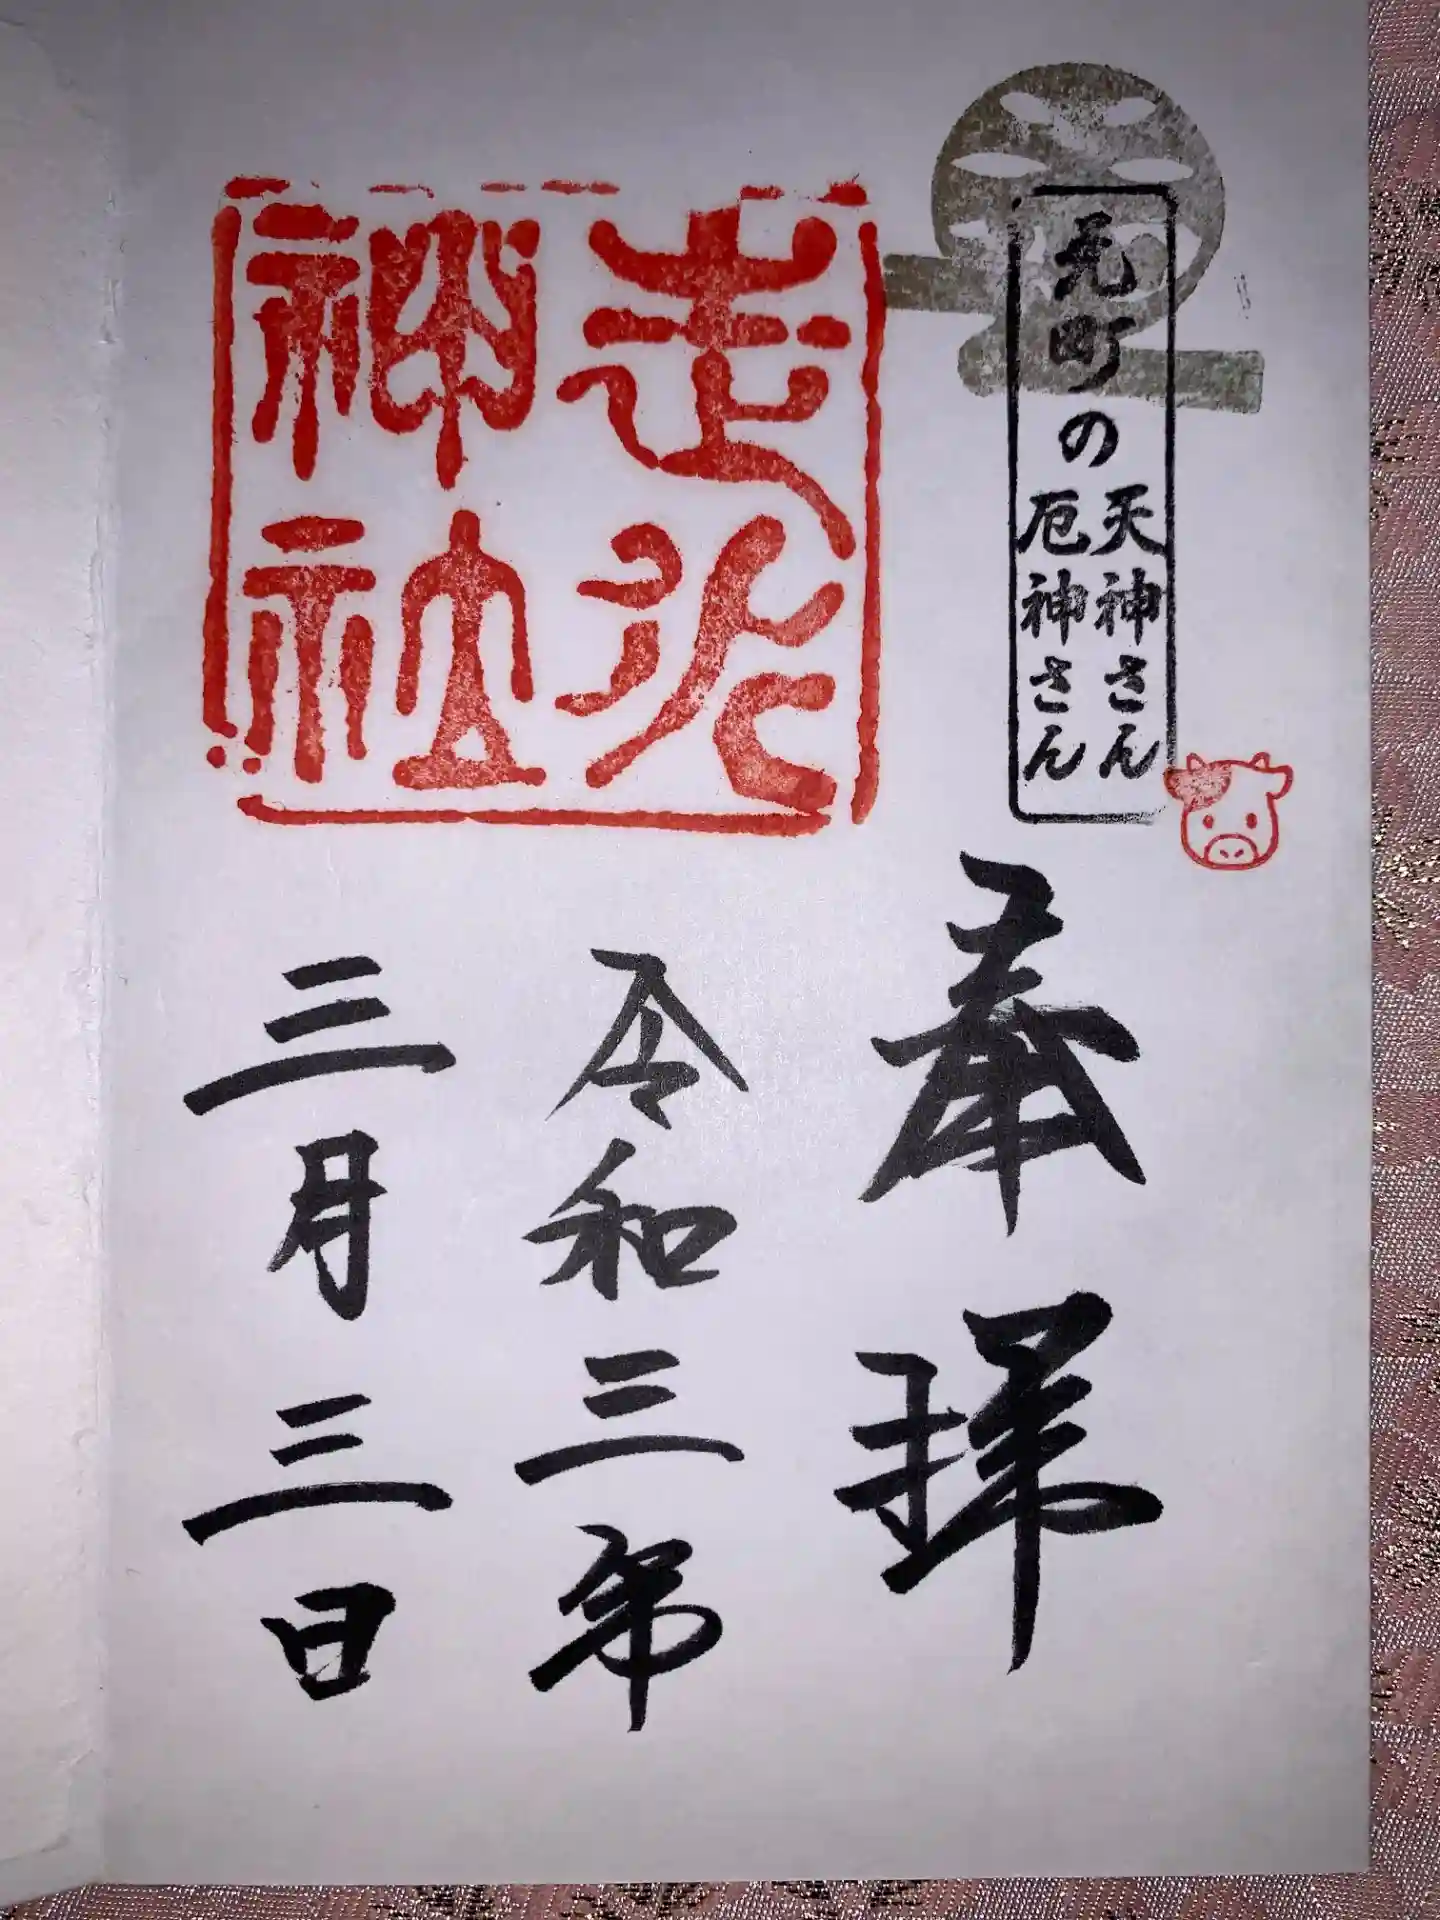 元町の
天神さん
厄神さん
走水
神社
奉拝
令和三年
三月三日